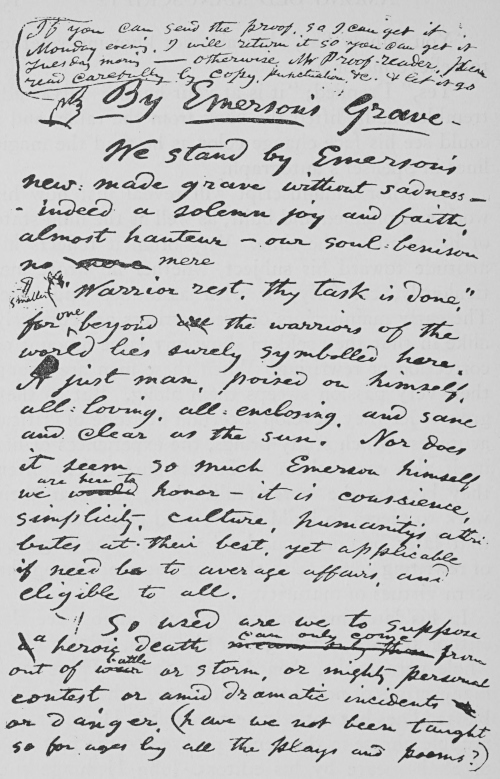 If you can send the proof, so I can get it
Monday eveng, I will return it so you can get it
Tuesday morng — otherwise Mr Proof-reader, please
read carefully by copy, punctuation, &c. & let it go
By Emerson's Grave.
We stand by Emerson's
new-made grave without sadness —
indeed a solemn joy and faith,
almost hauteur — our soul-benison
no mere
"Warrior rest, thy task is done"
smaller
for one beyond the warriors of the
world lies surely symbolled here.
A just man, poised on himself,
all-loving, all-enclosing, and sane
and clear as the sun. Nor does
it seem so much Emerson himself
we are here to honor — it is conscience,
simplicity, culture, humanity's attri-
butes at their best, yet applicable
if need be to average affairs, and
eligible to all.
So used are we to suppose
a heroic death can only come from
out of battle or storm, or mighty personal
contest or amid dramatic incidents
or danger, (have we not been taught
so for ages by all the plays and poems?)